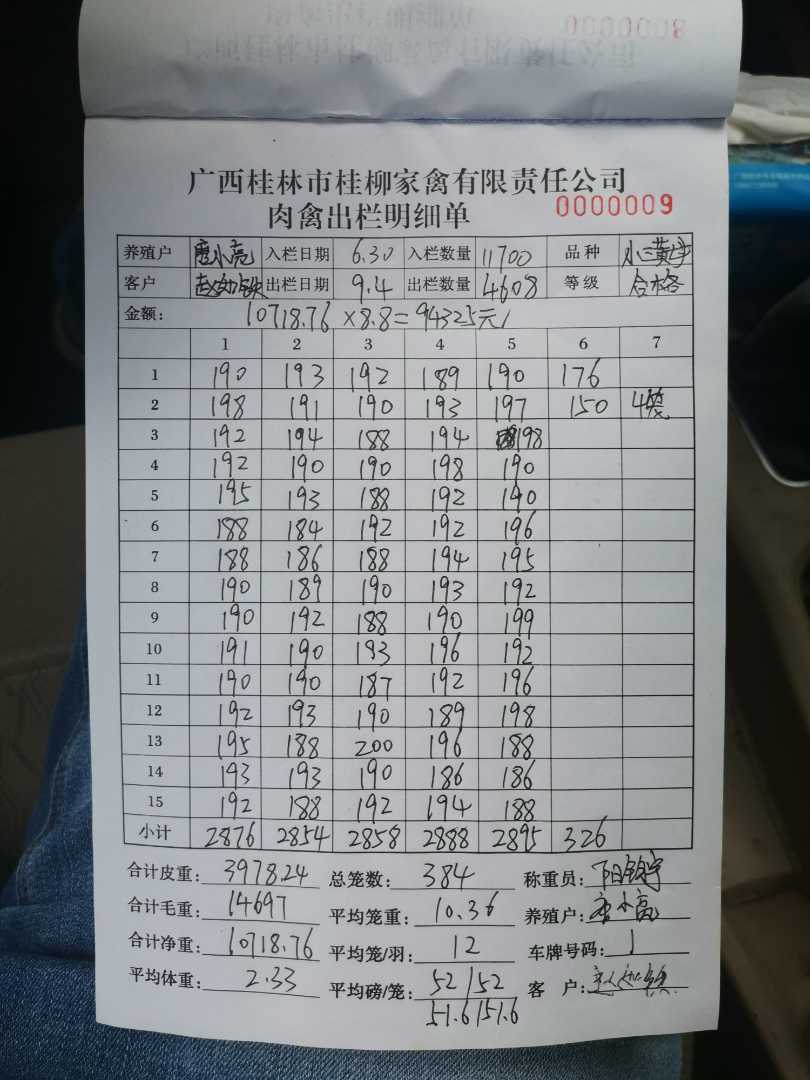 0000008
广西桂林市桂柳家禽有限责任公司
肉禽出栏明细单 0000009
养殖户 唐小亮 入栏日期 6.30 入栏数量 11700 品种 小三黄
客户 出栏日期 9.4 出栏数量 4608 等级 合格
金额： 10718.76×8.8=94325元
1 2 3 4 5 6 7
1 190 193 192 189 190 176
2 198 191 190 193 197 150 4笼
3 192 194 188 194 198
4 192 190 190 198 190
5 195 193 188 192 190
6 188 184 192 192 196
7 188 186 188 194 195
8 190 189 190 193 192
9 190 192 188 190 199
10 191 190 193 196 192
11 190 190 187 192 196
12 192 193 190 189 198
13 195 188 200 196 188
14 193 193 190 186 186
15 192 188 192 194 188
小计 2876 2854 2858 2888 2895 326
合计皮重： 3978.24 总笼数： 384 称重员：
合计毛重： 14697 平均笼重： 10.36 养殖户： 唐小亮
合计净重： 10718.76 平均笼/羽： 12 车牌号码： 1
平均体重： 2.33 平均磅/笼： 52/52 客 户：
51.6/51.6